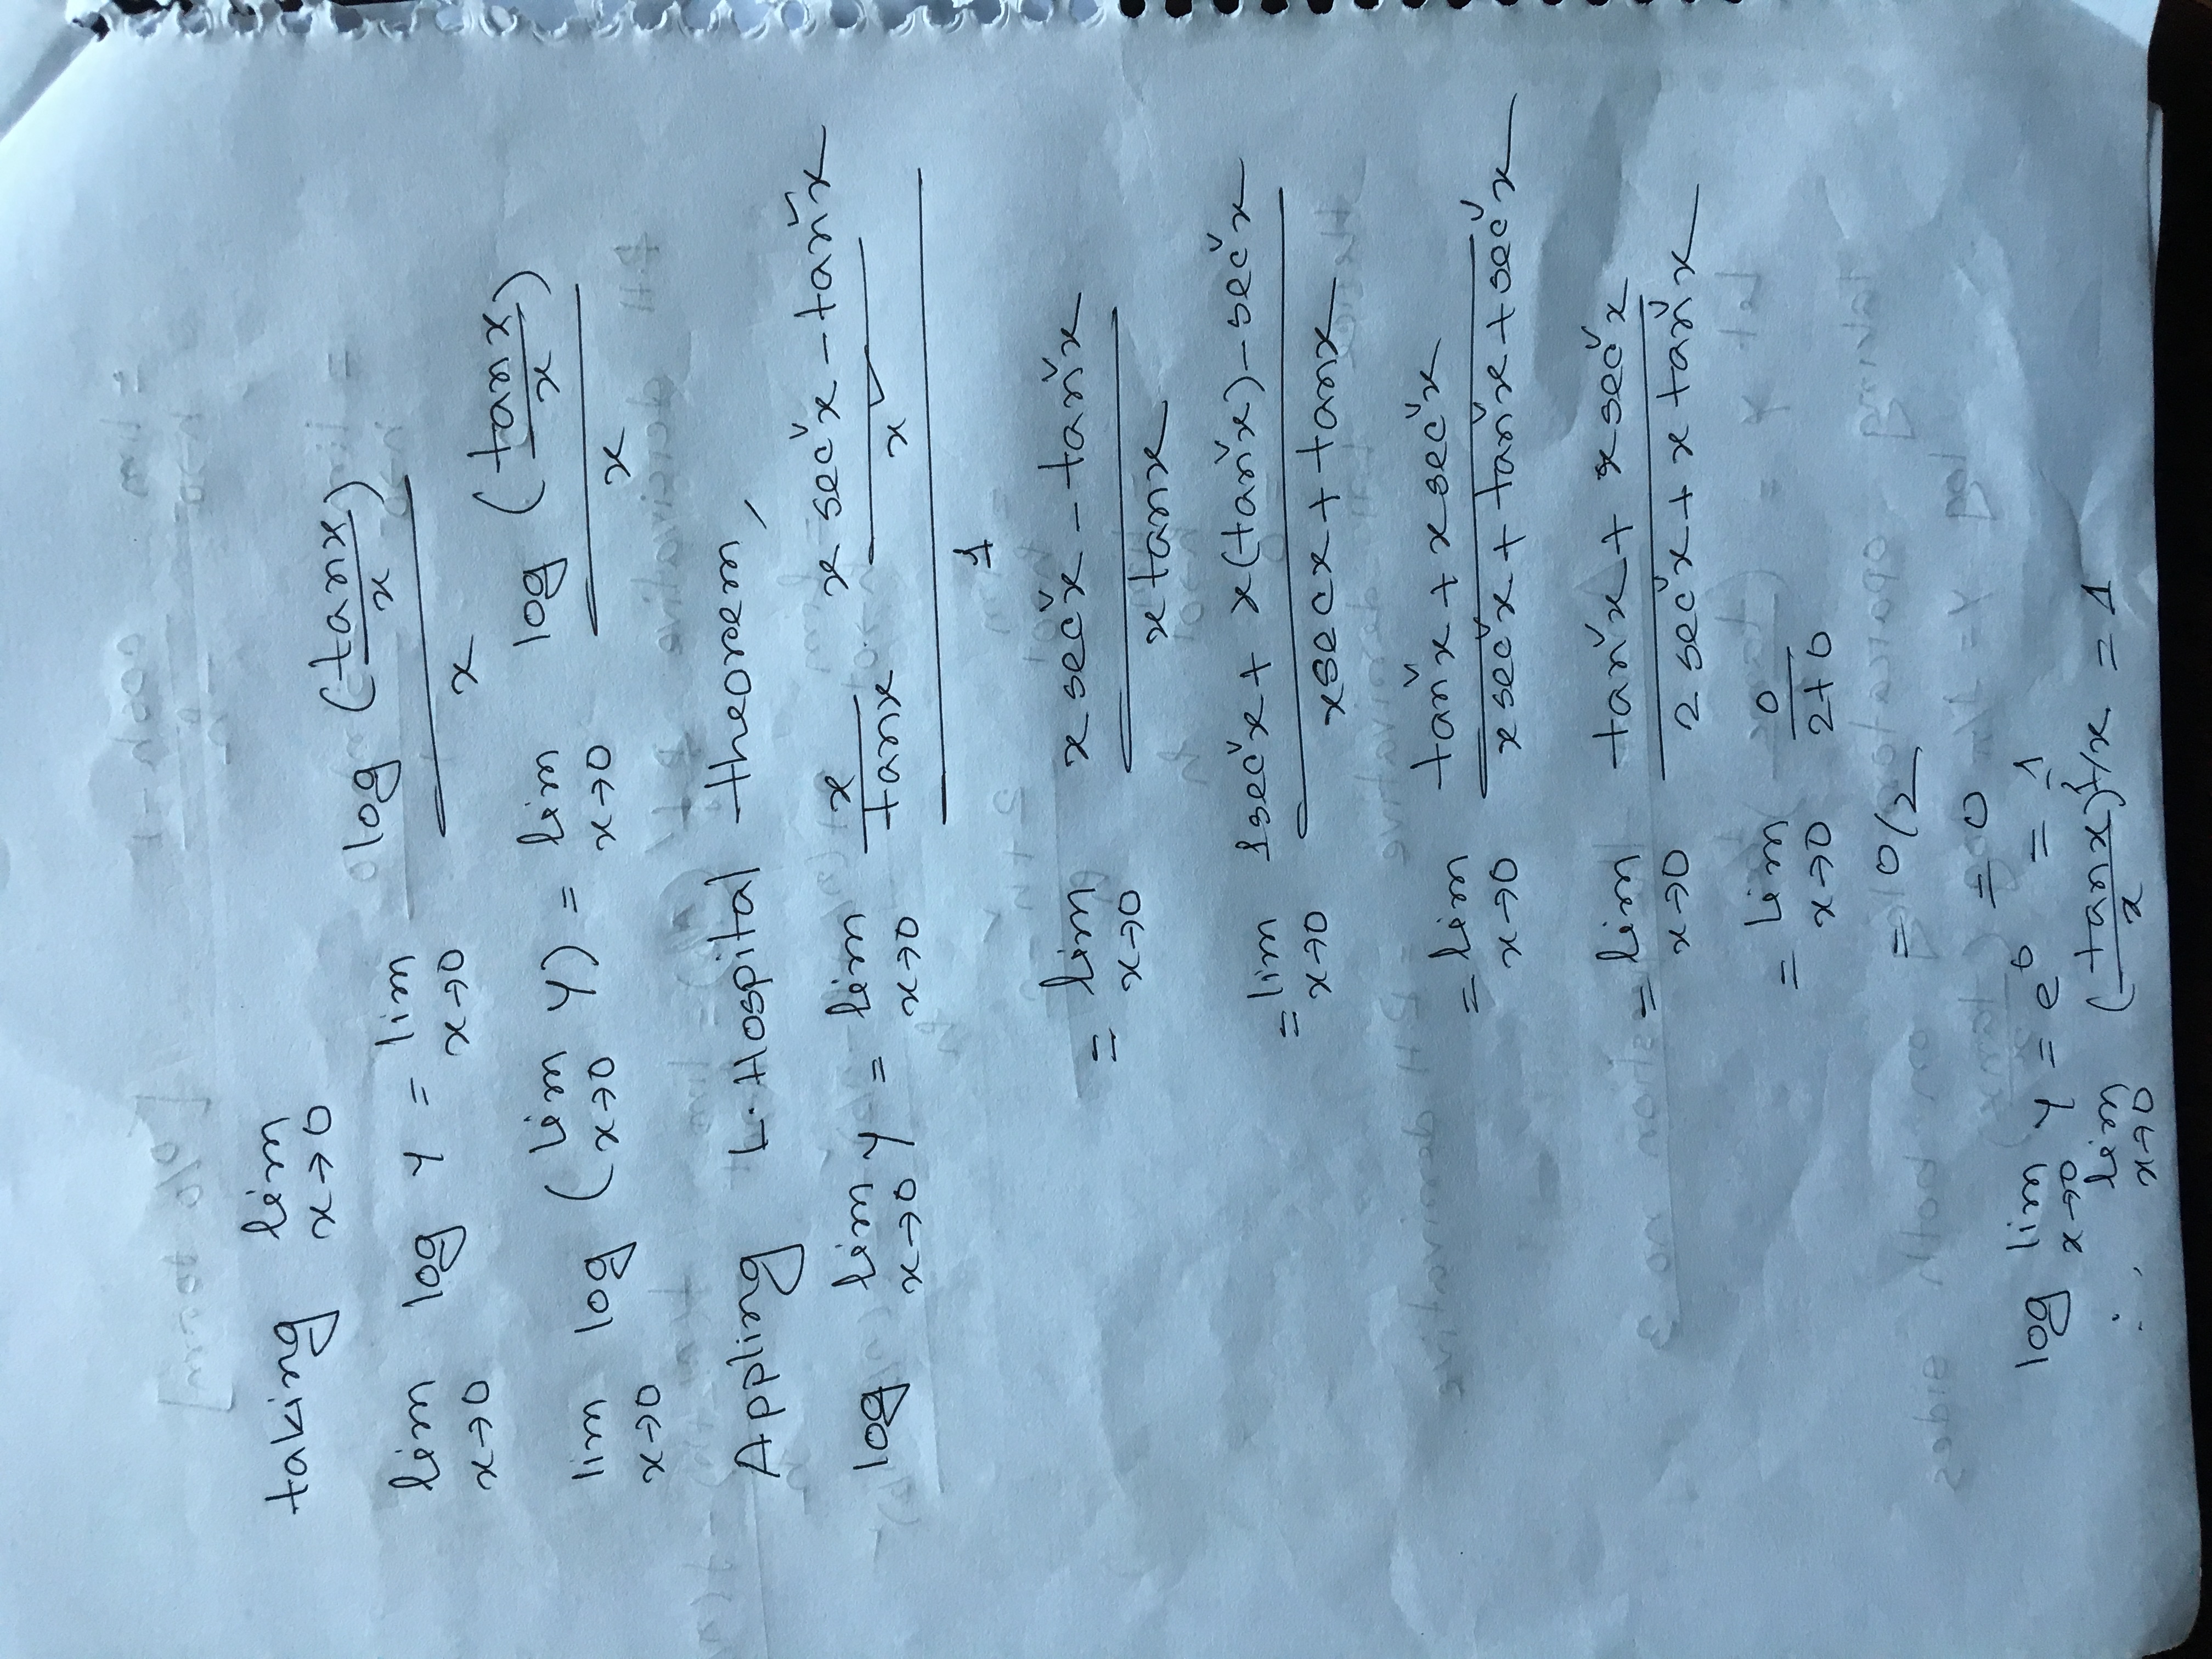 taking lim x→0
lim x→0 log y = lim x→0 log (tanx/x) / x
lim x→0 log (lim x→0 y) = lim x→0 log (tanx/x) / x
Appling L. Hospital theorem,
log lim x→0 y = lim x→0 x/tanx · (x sec²x - tan²x)/x² / 1
= lim x→0 (x sec²x - tan²x) / (x tanx)
= lim x→0 (1sec²x + x(tan²x) - sec²x) / (xsecx + tanx)
= lim x→0 (tan²x + x sec²x) / (x sec²x + tan²x + sec²x)
= lim x→0 (tan²x + x sec²x) / (2 sec²x + x tan²x)
= lim x→0 0 / (2+0)
= 0/2
= 0
log lim x→0 y = e⁰ = 1
∴ lim x→0 (tanx/x)^1/x = 1